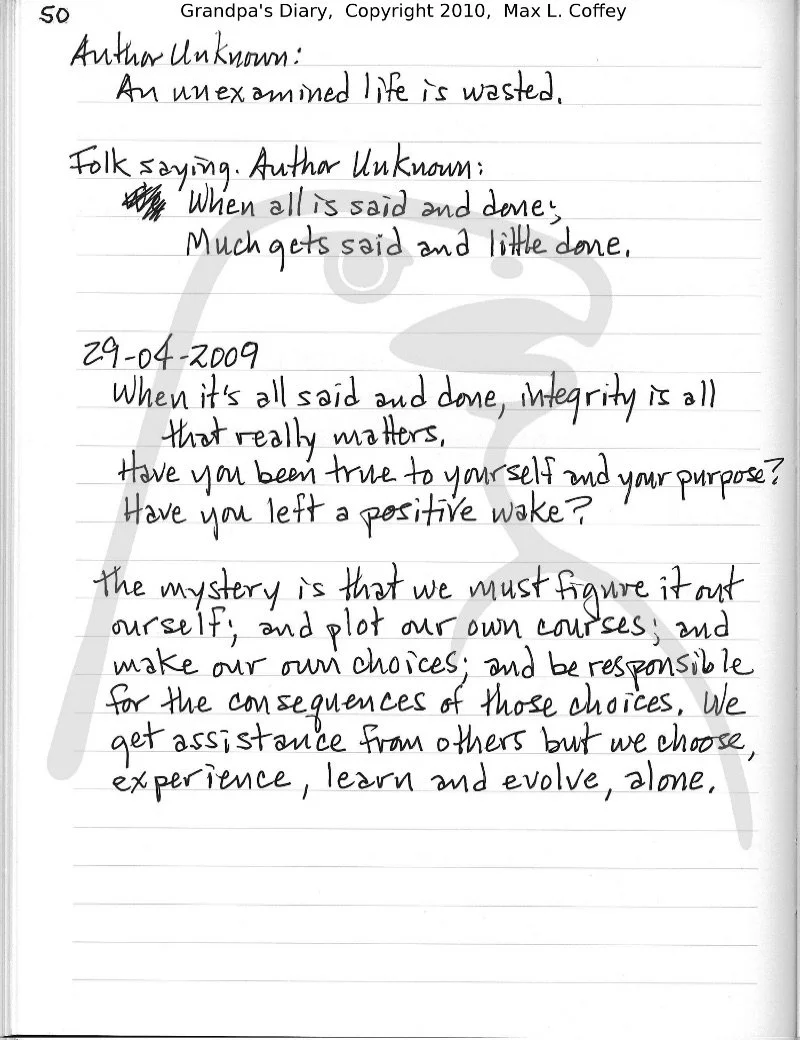 50
Grandpa's Diary, Copyright 2010, Max L. Coffey
Author Unknown:
An unexamined life is wasted.
Folk saying. Author Unknown:
When all is said and done;
Much gets said and little done.
29-04-2009
When it's all said and done, integrity is all
that really matters.
Have you been true to yourself and your purpose?
Have you left a positive wake?
The mystery is that we must figure it out
ourself; and plot our own courses; and
make our own choices; and be responsible
for the consequences of those choices. We
get assistance from others but we choose,
experience, learn and evolve, alone.